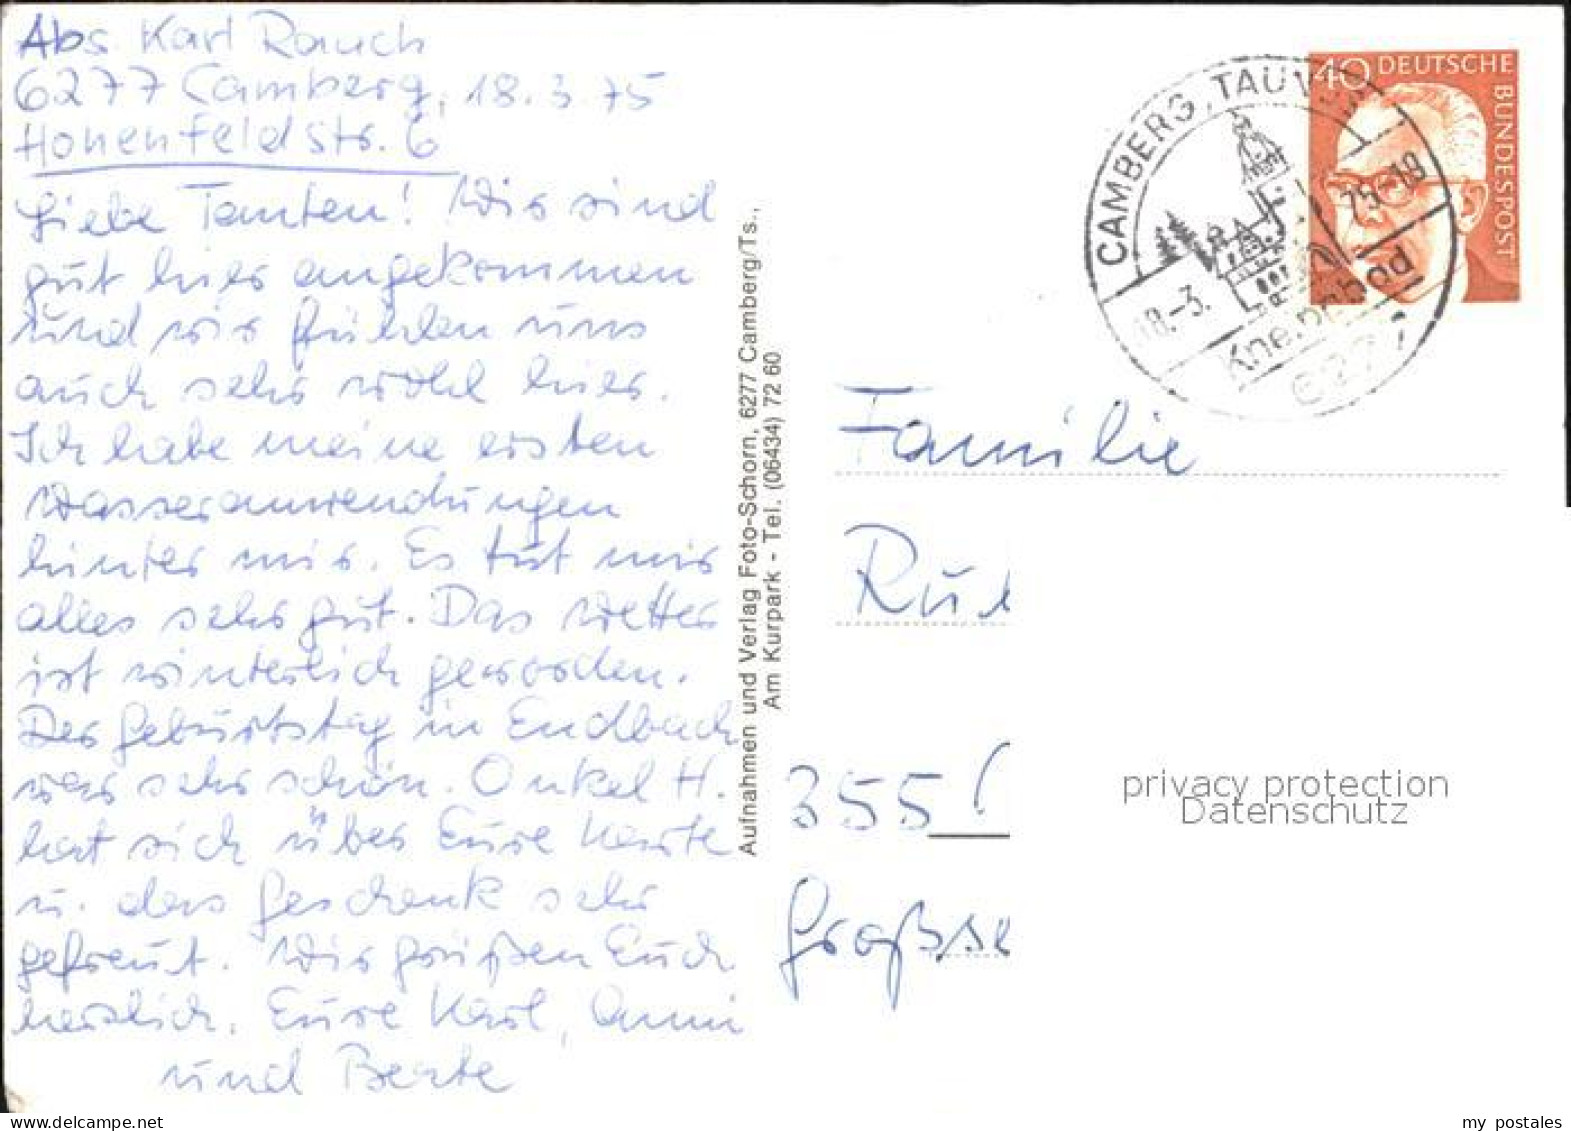 Abs. Karl Rauch
6277 Camberg, 18.3.75
Hohenfeldstr. 6
Liebe Tanten! Wir sind
gut hier angekommen
und wir fühlen uns
auch sehr wohl hier.
Ich habe meine ersten
Wasseranwendungen
hinter mir. Es tut mir
alles sehr gut. Das Wetter
ist winterlich geworden.
Der Geburtstag in Endbach
war sehr schön. Onkel H.
hat sich über Eure Karte
u. das Geschenk sehr
gefreut. Wir grüßen Euch
herzlich. Eure Karl, Anni
und Beate
Aufnahmen und Verlag Foto-Schorn, 6277 Camberg/Ts.,
Am Kurpark - Tel. (06434) 72 60
CAMBERG, TAUNUS
18.-3. 75-18
Kneippbad
6277
40 DEUTSCHE
BUNDESPOST
Familie
355
privacy protection
Datenschutz
my postales